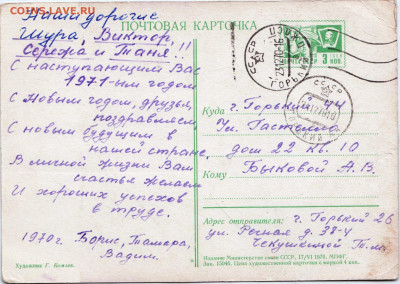 СОНС.ЛАV.RU
Наши дорогие
Шура, Виктор,
Сережа и Таня!!
С наступающим Вас
1971-ым годом
С Новым годом, друзья,
поздравляем
С новым будущим в
нашей стране,
В личной жизни Вам
счастья желаем
И хороших успехов
в труде.
1970г. Борис, Тамара,
Вадим.
Художник Г. Комлев.
ПОЧТОВАЯ КАРТОЧКА
СССР
ГОРЬКИЙ
3 КОП.
Куда г. Горький 44
Ул. Гастелло
дом 22 кв. 10
Кому Быковой А. В.
Адрес отправителя: г. Горький 26
ул. Лесная д.
Издание Министерства связи СССР.
Цена художественной карточки с маркой 4 коп.